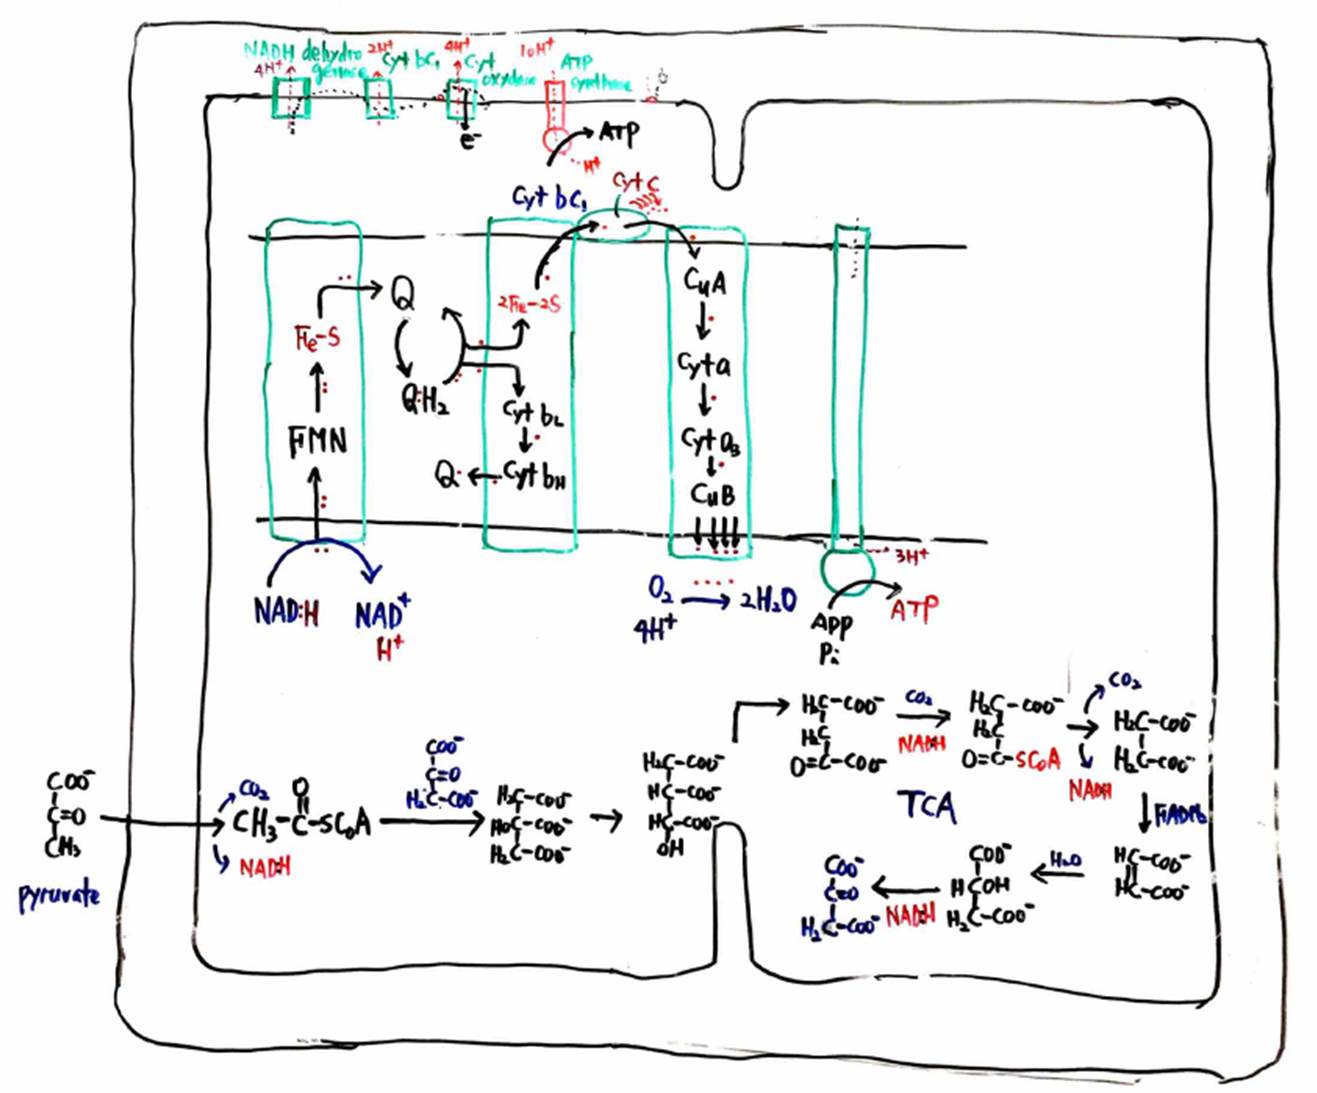 NADH dehydro
genase
4H⁺
2H⁺
Cyt bc₁
4H⁺
Cyt
oxydase
10H⁺
ATP
synthase
e⁻
ATP
H⁺
Cyt bc₁
Cyt C
Fe-S
FMN
NAD:H
NAD⁺
H⁺
Q
QH₂
2Fe-2S
Cyt bL
Cyt bH
Q
CuA
Cyt a
Cyt a₃
CuB
O₂
4H⁺
2H₂O
3H⁺
APP
Pi
ATP
COO⁻
C=O
CH₃
pyruvate
CO₂
NADH
O
CH₃-C-SCoA
COO⁻
C=O
H₂C-COO⁻
H₂C-COO⁻
HOC-COO⁻
H₂C-COO⁻
H₂C-COO⁻
HC-COO⁻
HC-COO⁻
OH
H₂C-COO⁻
H₂C
O=C-COO⁻
CO₂
NADH
H₂C-COO⁻
H₂C
O=C-SCoA
CO₂
NADH
H₂C-COO⁻
H₂C-COO⁻
FADH₂
HC-COO⁻
HC-COO⁻
H₂O
COO⁻
HCOH
H₂C-COO⁻
NADH
COO⁻
C=O
H₂C-COO⁻
TCA